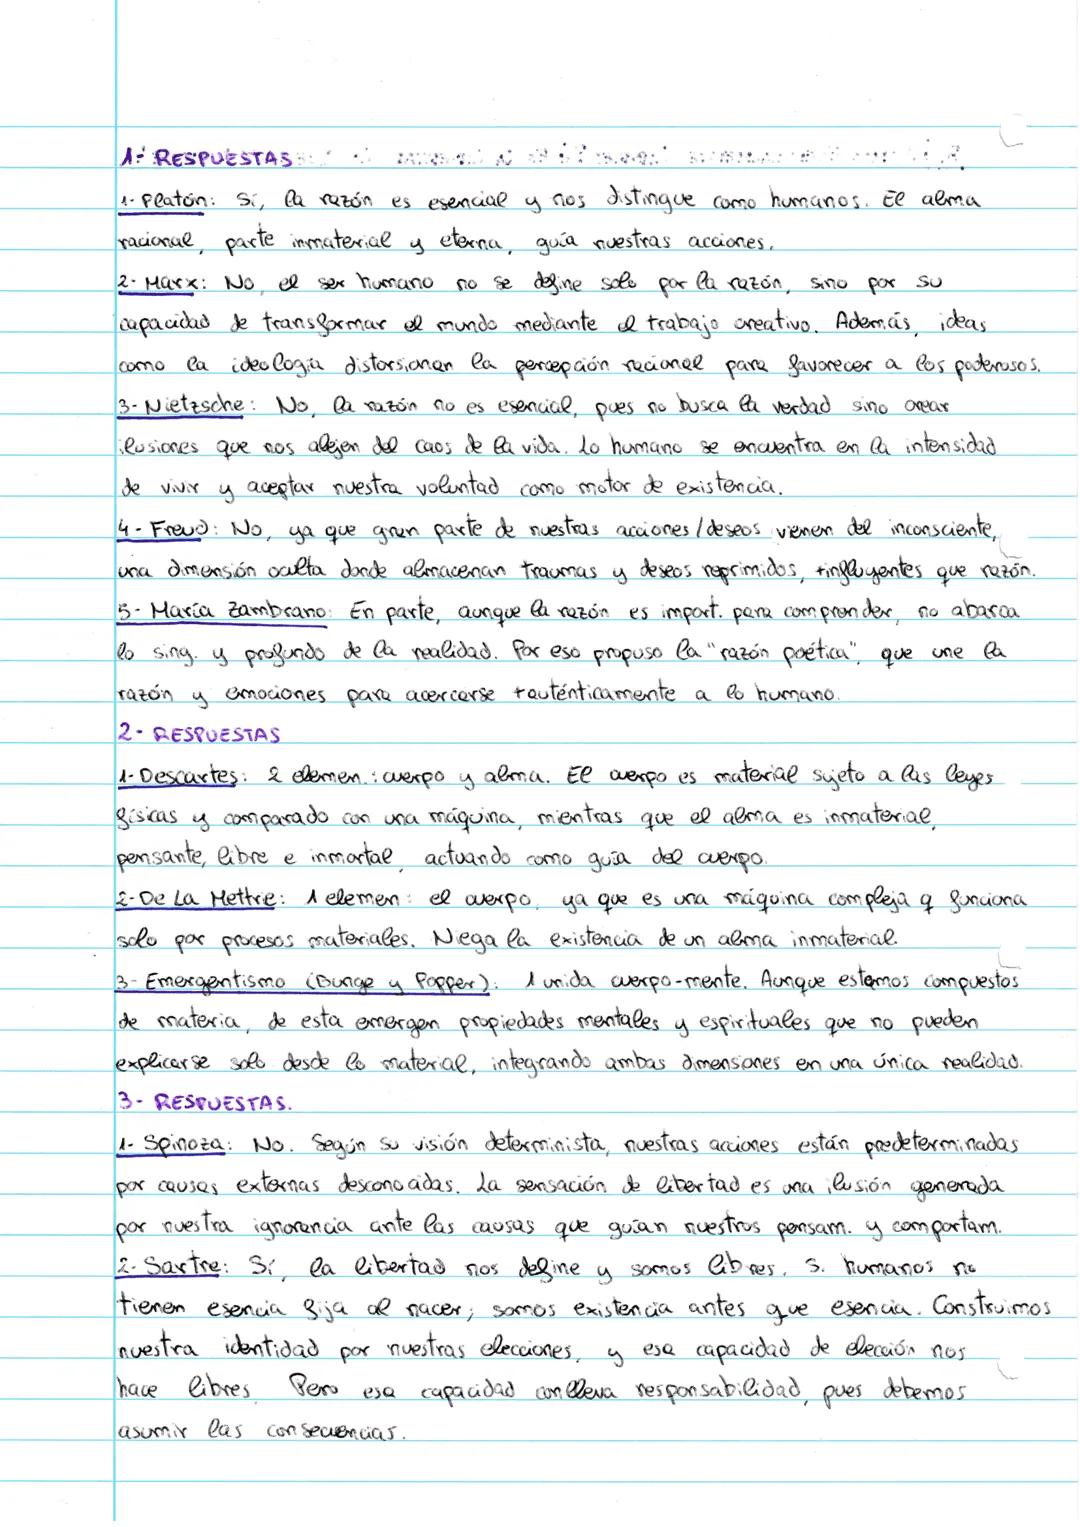 1- RESPUESTAS
1- Platón: Sí, la razón es esencial y nos distingue como humanos. El alma
racional, parte inmaterial y eterna, guía nuestras acciones.
2- Marx: No, el ser humano no se define solo por la razón, sino por su
capacidad de transformar el mundo mediante el trabajo creativo. Además, ideas
como la ideología distorsionan la percepción racional para favorecer a los poderosos.
3- Nietzsche: No, la razón no es esencial, pues no busca la verdad sino crear
ilusiones que nos alejen del caos de la vida. Lo humano se encuentra en la intensidad
de vivir y aceptar nuestra voluntad como motor de existencia.
4- Freud: No, ya que gran parte de nuestras acciones/deseos vienen del inconsciente,
una dimensión oculta donde almacenan traumas y deseos reprimidos, +influyentes que razón.
5- María Zambrano: En parte, aunque la razón es import. para comprender, no abarca
lo sing. y profundo de la realidad. Por eso propuso la "razón poética", que une la
razón y emociones para acercarse +auténticamente a lo humano.
2- RESPUESTAS
1- Descartes: 2 elemen.: cuerpo y alma. El cuerpo es material sujeto a las leyes
físicas y comparado con una máquina, mientras que el alma es inmaterial,
pensante, libre e inmortal, actuando como guía del cuerpo.
2- De La Mettrie: 1 elemen: el cuerpo, ya que es una máquina compleja q funciona
solo por procesos materiales. Niega la existencia de un alma inmaterial.
3- Emergentismo (Bunge y Popper): 1 unida cuerpo-mente. Aunque estamos compuestos
de materia, de esta emergen propiedades mentales y espirituales que no pueden
explicarse solo desde lo material, integrando ambas dimensiones en una única realidad.
3- RESPUESTAS.
1- Spinoza: No. Según su visión determinista, nuestras acciones están predeterminadas
por causas externas desconocidas. La sensación de libertad es una ilusión generada
por nuestra ignorancia ante las causas que guían nuestros pensam. y comportam.
2- Sartre: Sí, la libertad nos define y somos libres. S. humanos no
tienen esencia fija al nacer; somos existencia antes que esencia. Construimos
nuestra identidad por nuestras elecciones, y esa capacidad de elección nos
hace libres. Pero esa capacidad conlleva responsabilidad, pues debemos
asumir las consecuencias.